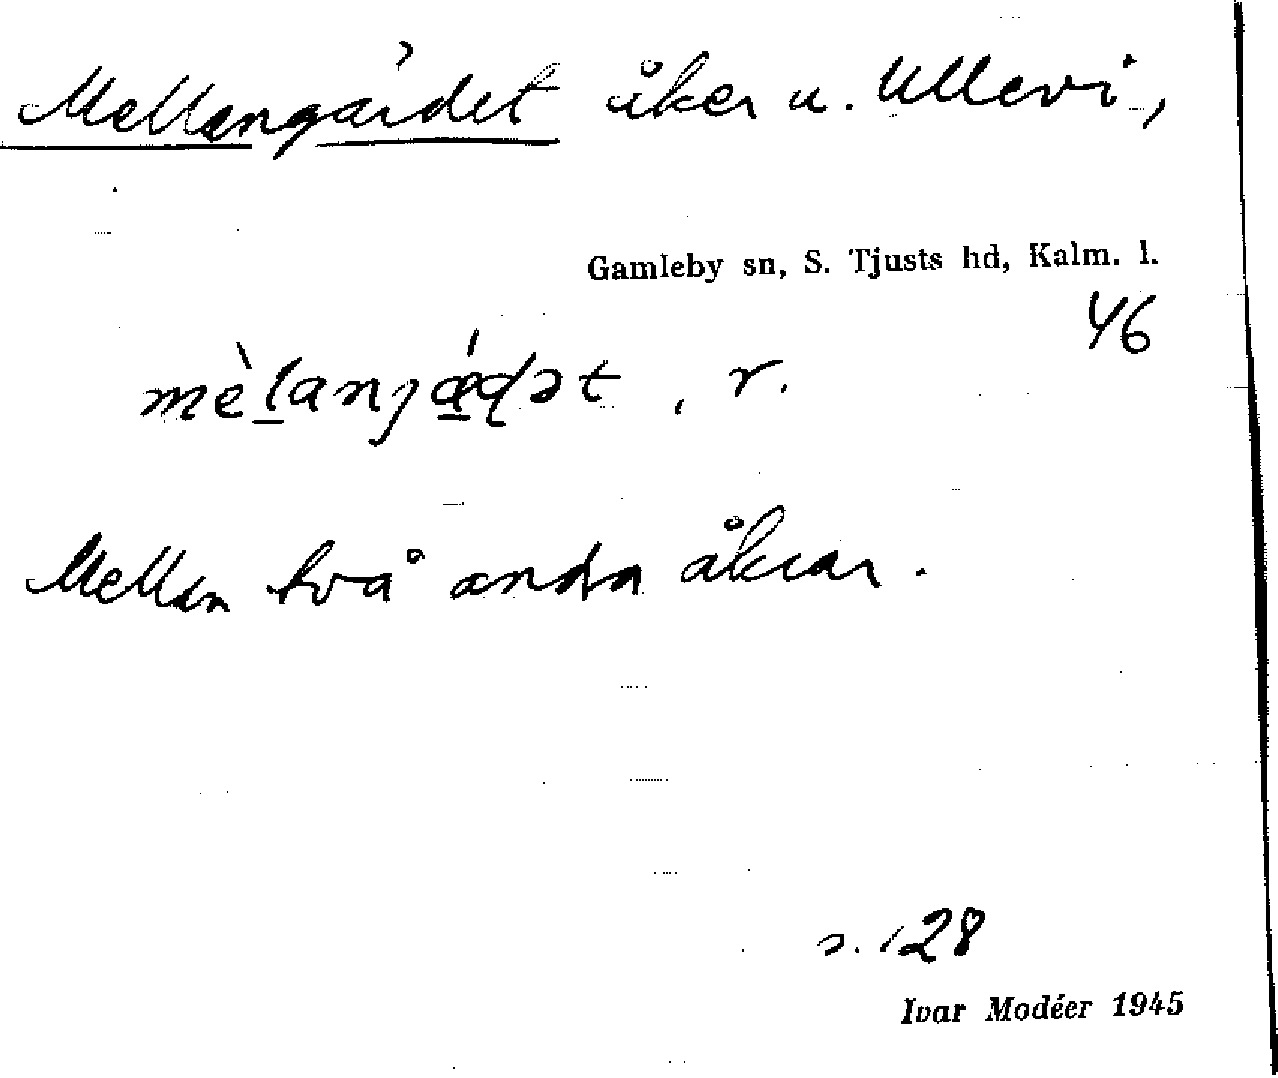 Mellangärdet åker u. Ullevi,
Gamleby sn, S. Tjusts hd, Kalm. l.
46
mèlanjǽɖət, r.
Mellan två andra åkrar.
s. 128
Ivar Modéer 1945